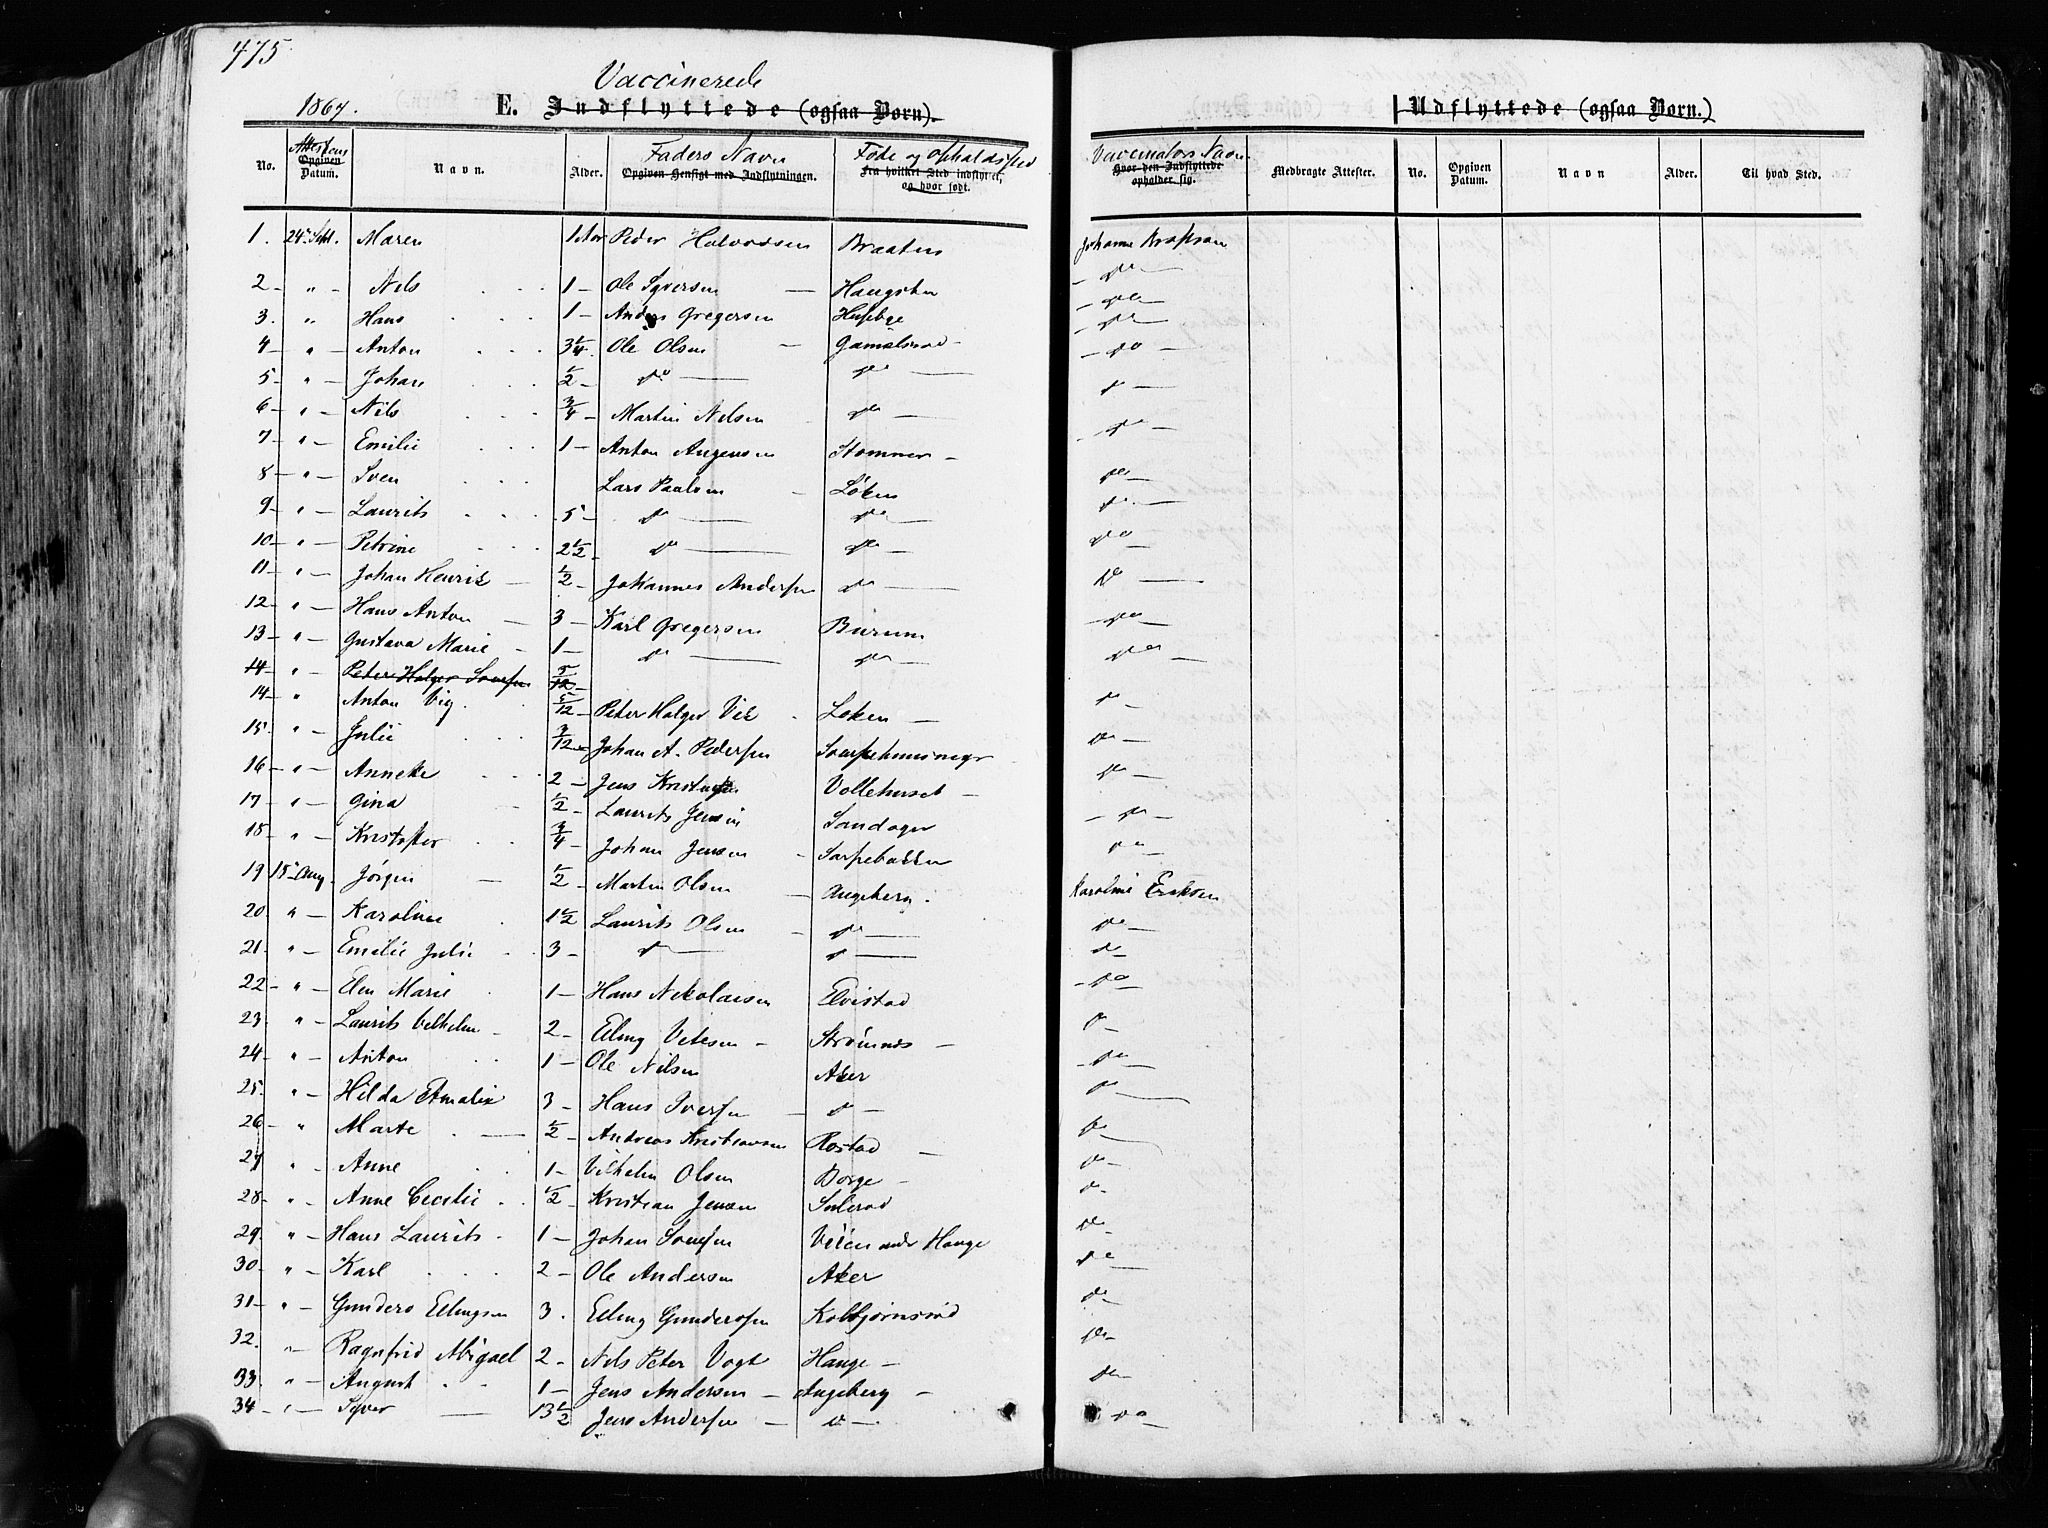 475
Vaccinerede
1867. E. Indflyttede (ogsaa Børn). Udflyttede (ogsaa Børn.)
No. Attestens Opgiven Datum. Navn. Alder. Faders Navn Opgiven Hensigt med Indflytningen. Føde og Opholdssted Fra hvilket Sted indflyttet, og hvor født. Vaccinators Navn. Hvor den Indflyttede opholder sig. Medbragte Attester. No. Opgiven Datum. Navn Alder. Til hvad Sted.
1. 24 Sept. Maren 1 Aar Peder Halvorsen Braaten Johanne
2 - " - Nils 1 - Ole Syversen - Haugsten - do -
3. " - Hans 1 - Anders Gregersen Husebye - do -
4 - " - Anton 3/4 - Ole Olsen - Gamelsrød - do -
5 - " - Johan 1/2 - do - do - do -
6 - " - Nils 3/4 - Martin Nilsen do - do -
7 - " - Emilie 1 - Anton Augensen Stommen - do -
8 - " - Sven Lars Paulsen - Løken do -
9 - " - Laurits 5 - do - do - do -
10 - " - Petrine 2 1/2 - do - do - do -
11 - " - Johan Henrik - 1/2 - Johannes Andersen do - do -
12 - " - Hans Anton - 3 - Karl Gregersen Burum - do -
13 - " - Gustava Marie - 1 - do - do - do -
14 - " - Peter Holger 5/12 -
14 - " Anton Vig 5/12 - Peter Holger Vik - Løken - do -
15 - " - Julie 3/12 - Johan A. Pedersen do -
16 - " - Anneke 2 - Jens do -
17 - " - Gina 1/2 - Laurits Jensen Sandager - do -
18 - " - Kristoffer 3/4 - Johan Jensen - Sarpebakken do -
19 15 Aug. Jørgen - 1/2 - Martin Olsen - Augeberg. Karoline Eriksen
20. " - Karoline 1 1/2 Laurits Olsen - do - do -
21. " - Emilie Julie 3 - do - do - do -
22 - " - Elen Marie 1 - Hans Nikolaisen Elvestad - do -
23. " - Laurits Vilhelm - 2 - Edling - Strømnes - do -
24 - " - Anton 1 - Ole Nilsen Aker - do -
25. " - Hilda Amalie 3 - Hans Iversen - do - do -
26 - " - Marte - 1/2 - Andreas Kristiansen Rostad - do -
27 " - Anne 1 - Vilhelm Olsen Borge - do -
28 - " - Anne Cecilie 1/2 - Kristian Jensen do -
29. " - Hans Laurits - 1 - Johan under Hauge do -
30 - " - Karl 2 - Ole Andersen Aker do -
31 - " - Gunders 3. Edling Gundersen Kolbjørnsrød do -
32. " - Ragnfrid Abigael 2 - Nils Peter Vogt Hauge - do -
33. " - August 1 - Jens Andersen - Augeberg - do -
34 - " - Syver - 13 1/2 Jens Andersen - do - do -